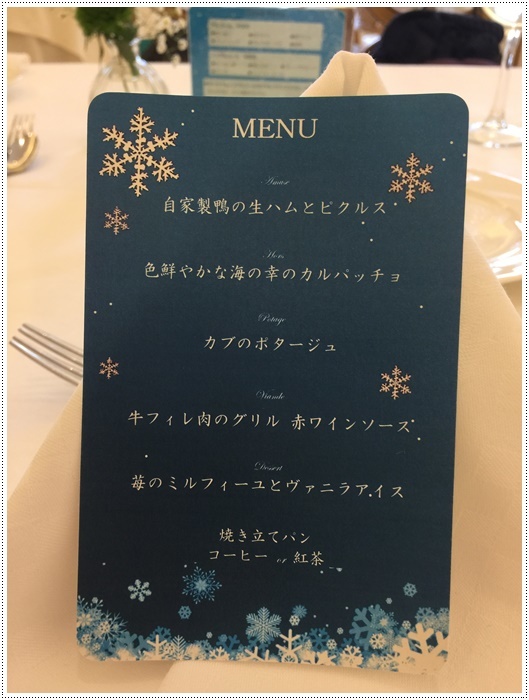 MENU
Amuse
自家製鴨の生ハムとピクルス
Hors
色鮮やかな海の幸のカルパッチョ
Potage
カブのポタージュ
Viande
牛フィレ肉のグリル 赤ワインソース
Dessert
苺のミルフィーユとヴァニラアイス
焼き立てパン
コーヒー or 紅茶